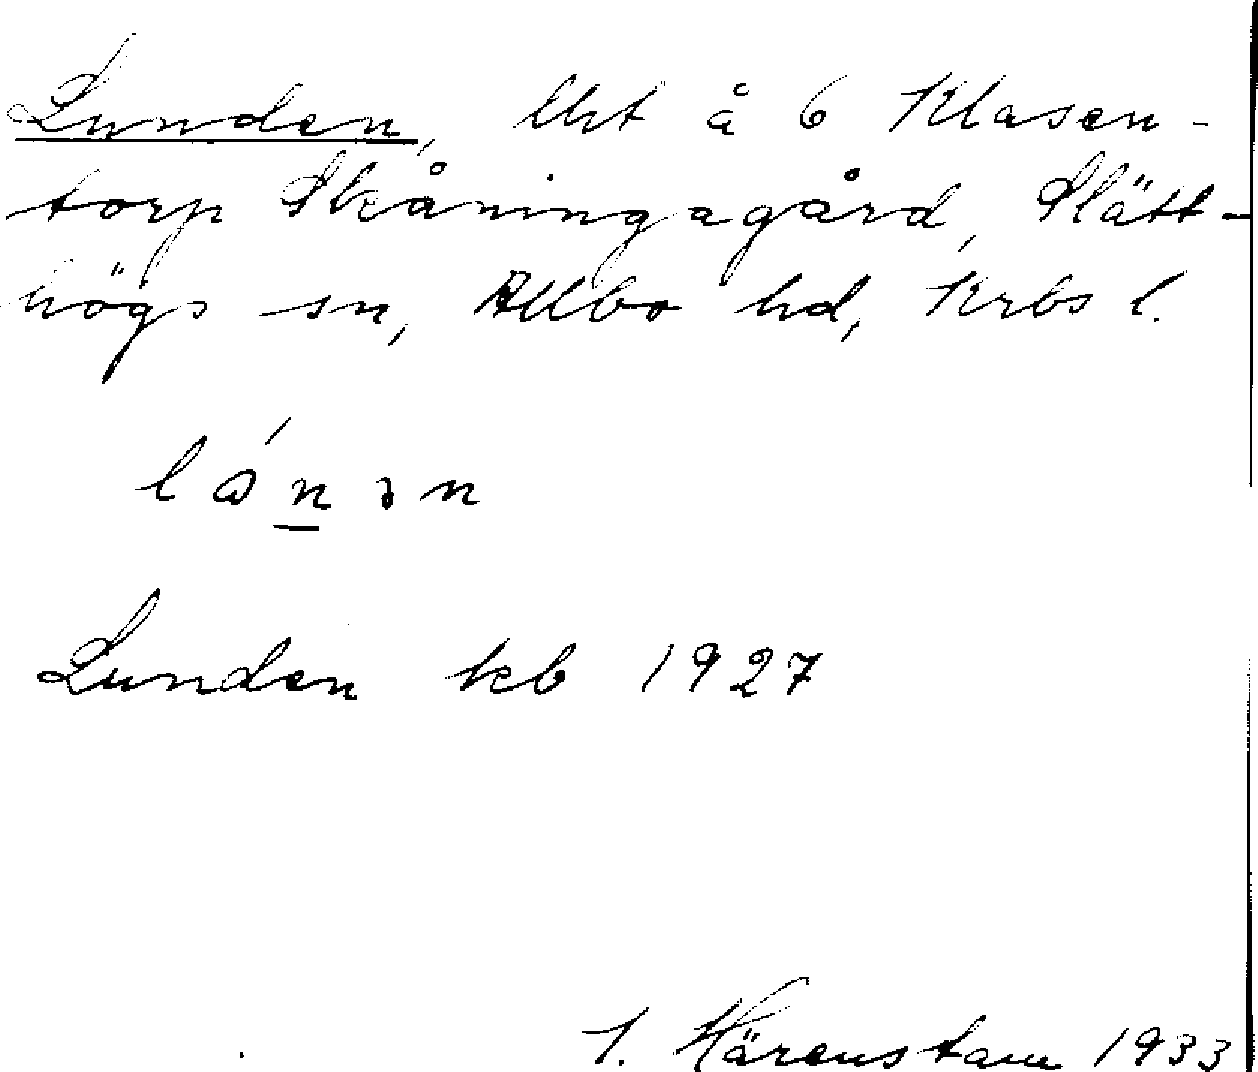 Lunden, lht å 6 Klasen-
torp Skåningagård, Slätt-
högs sn, Allbo hd, Krbs l.
Lunden kb 1927
Härenstam 1933